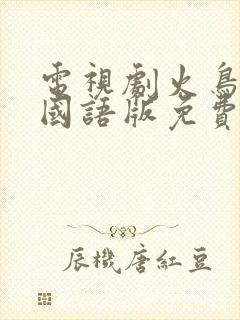 電視劇火鳥
國語版免費
辰機唐紅豆